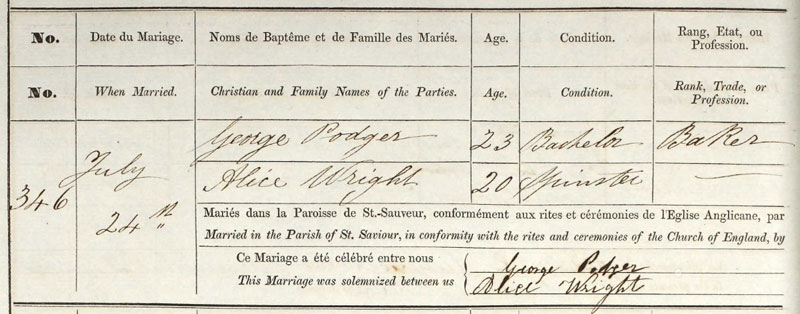 No. Date du Mariage. Noms de Baptême et de Famille des Mariés. Age. Condition. Rang, Etat, ou Profession.
No. When Married. Christian and Family Names of the Parties. Age. Condition. Rank, Trade, or Profession.
George Podger 23 Bachelor Baker
July
Alice Wright 20 Spinster
346
24th
Mariés dans la Paroisse de St.-Sauveur, conformément aux rites et cérémonies de l'Eglise Anglicane, par
Married in the Parish of St. Saviour, in conformity with the rites and ceremonies of the Church of England, by
Ce Mariage a été célébré entre nous George Podger
This Marriage was solemnized between us Alice Wright